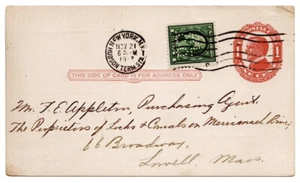 NEW YORK, N.Y.
HUDSON TERM. STA.
NOV 21
THIS SIDE OF CARD IS FOR ADDRESS ONLY
Mr. F. E. Appleton, Purchasing Agent.
The Proprietors of Locks & Canals on Merrimack River,
66 Broadway,
Lowell, Mass.